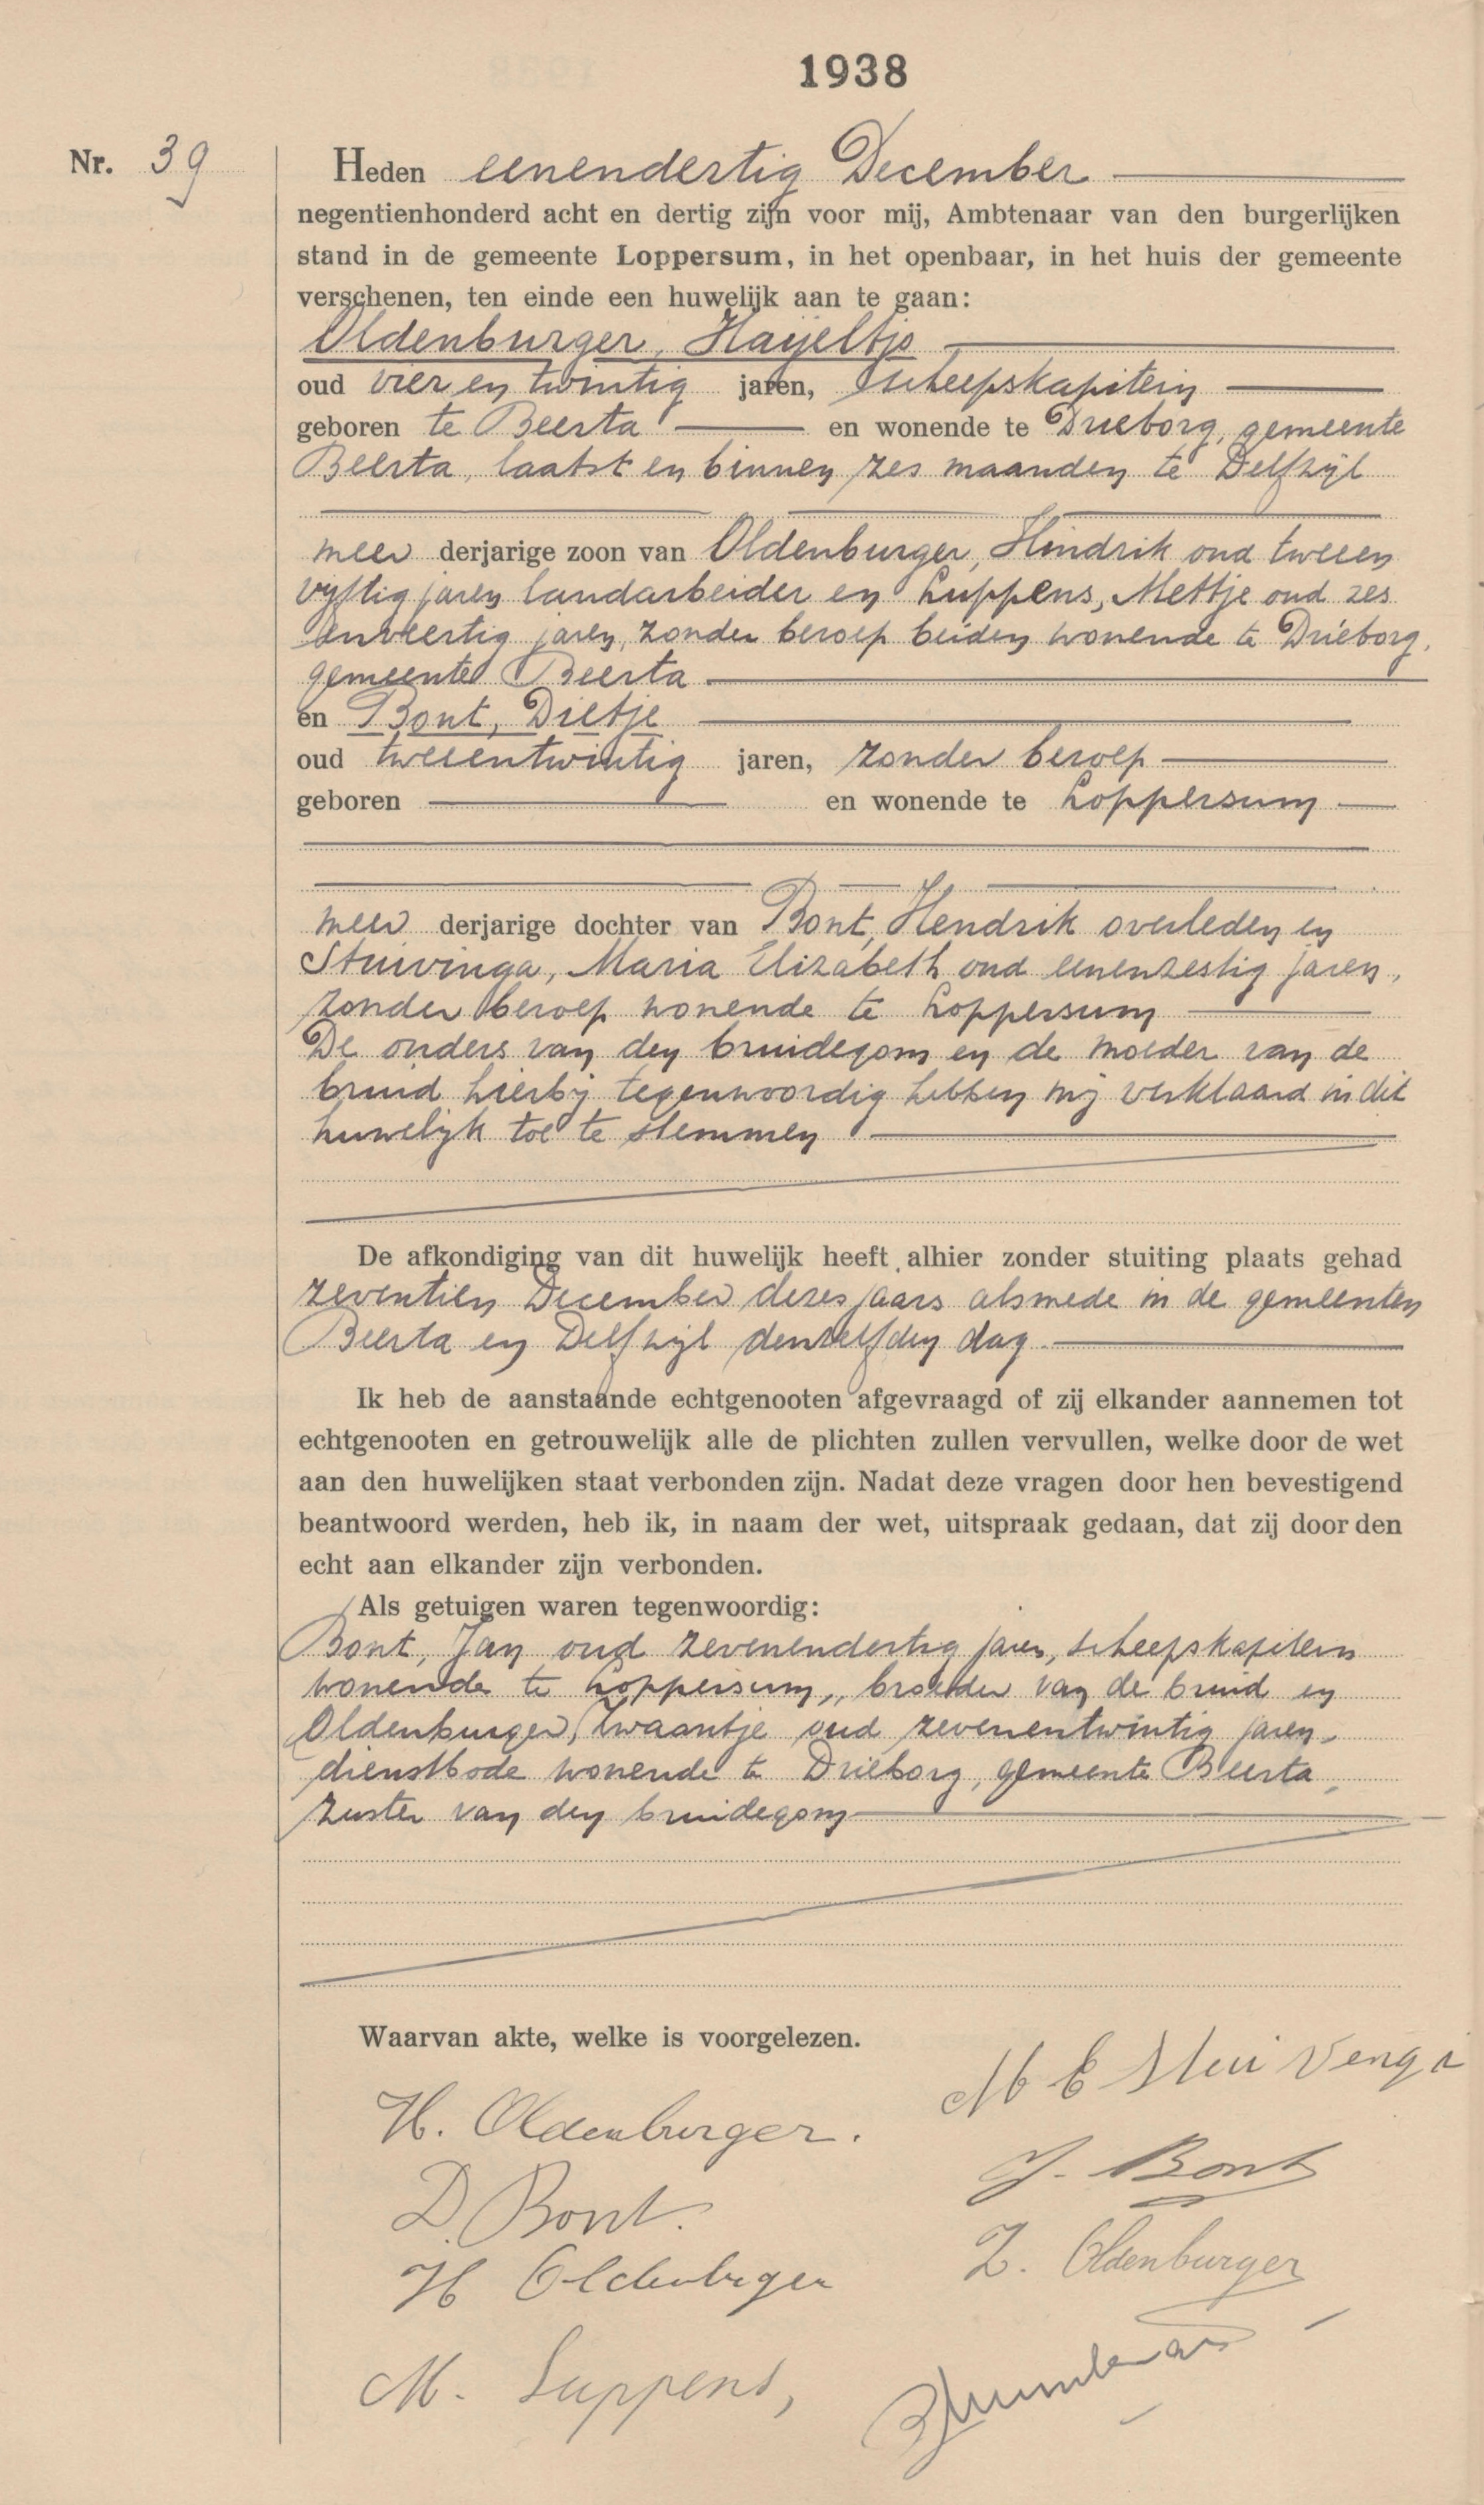 1938
Nr. 39
Heden eenendertig December
negentienhonderd acht en dertig zijn voor mij, Ambtenaar van den burgerlijken
stand in de gemeente Loppersum, in het openbaar, in het huis der gemeente
verschenen, ten einde een huwelijk aan te gaan:
Oldenburger, Haijeltjo
oud vier en twintig jaren, scheepskapitein
geboren te Beerta en wonende te Drieborg, gemeente
Beerta, laatst en binnen zes maanden te Delfzijl
meer derjarige zoon van Oldenburger, Hindrik oud tweeen
vijftig jaren landarbeider en Luppens, Mettje oud zes
enveertig jaren, zonder beroep beiden wonende te Drieborg,
gemeente Beerta
en Bont, Dietje
oud tweeentwintig jaren, zonder beroep
geboren en wonende te Loppersum
meer derjarige dochter van Bont, Hendrik overleden en
Stuivinga, Maria Elizabeth oud eenenzestig jaren,
zonder beroep wonende te Loppersum
De ouders van den bruidegom en de moeder van de
bruid hierbij tegenwoordig hebben mij verklaard in dit
huwelijk toe te stemmen
De afkondiging van dit huwelijk heeft alhier zonder stuiting plaats gehad
zeventien December dezes jaars alsmede in de gemeenten
Beerta en Delfzijl denzelfden dag
Ik heb de aanstaande echtgenooten afgevraagd of zij elkander aannemen tot
echtgenooten en getrouwelijk alle de plichten zullen vervullen, welke door de wet
aan den huwelijken staat verbonden zijn. Nadat deze vragen door hen bevestigend
beantwoord werden, heb ik, in naam der wet, uitspraak gedaan, dat zij door den
echt aan elkander zijn verbonden.
Als getuigen waren tegenwoordig:
Bont, Jan oud zevenendertig jaren, scheepskapitein
wonende te Loppersum, broeder van de bruid en
Oldenburger, Zwaantje oud zevenentwintig jaren,
dienstbode wonende te Drieborg, gemeente Beerta,
zuster van den bruidegom
Waarvan akte, welke is voorgelezen.
M E Stuivenga
H. Oldenburger.
J. Bont
D. Bont.
Z. Oldenburger
H Oldenburger
M. Luppens,